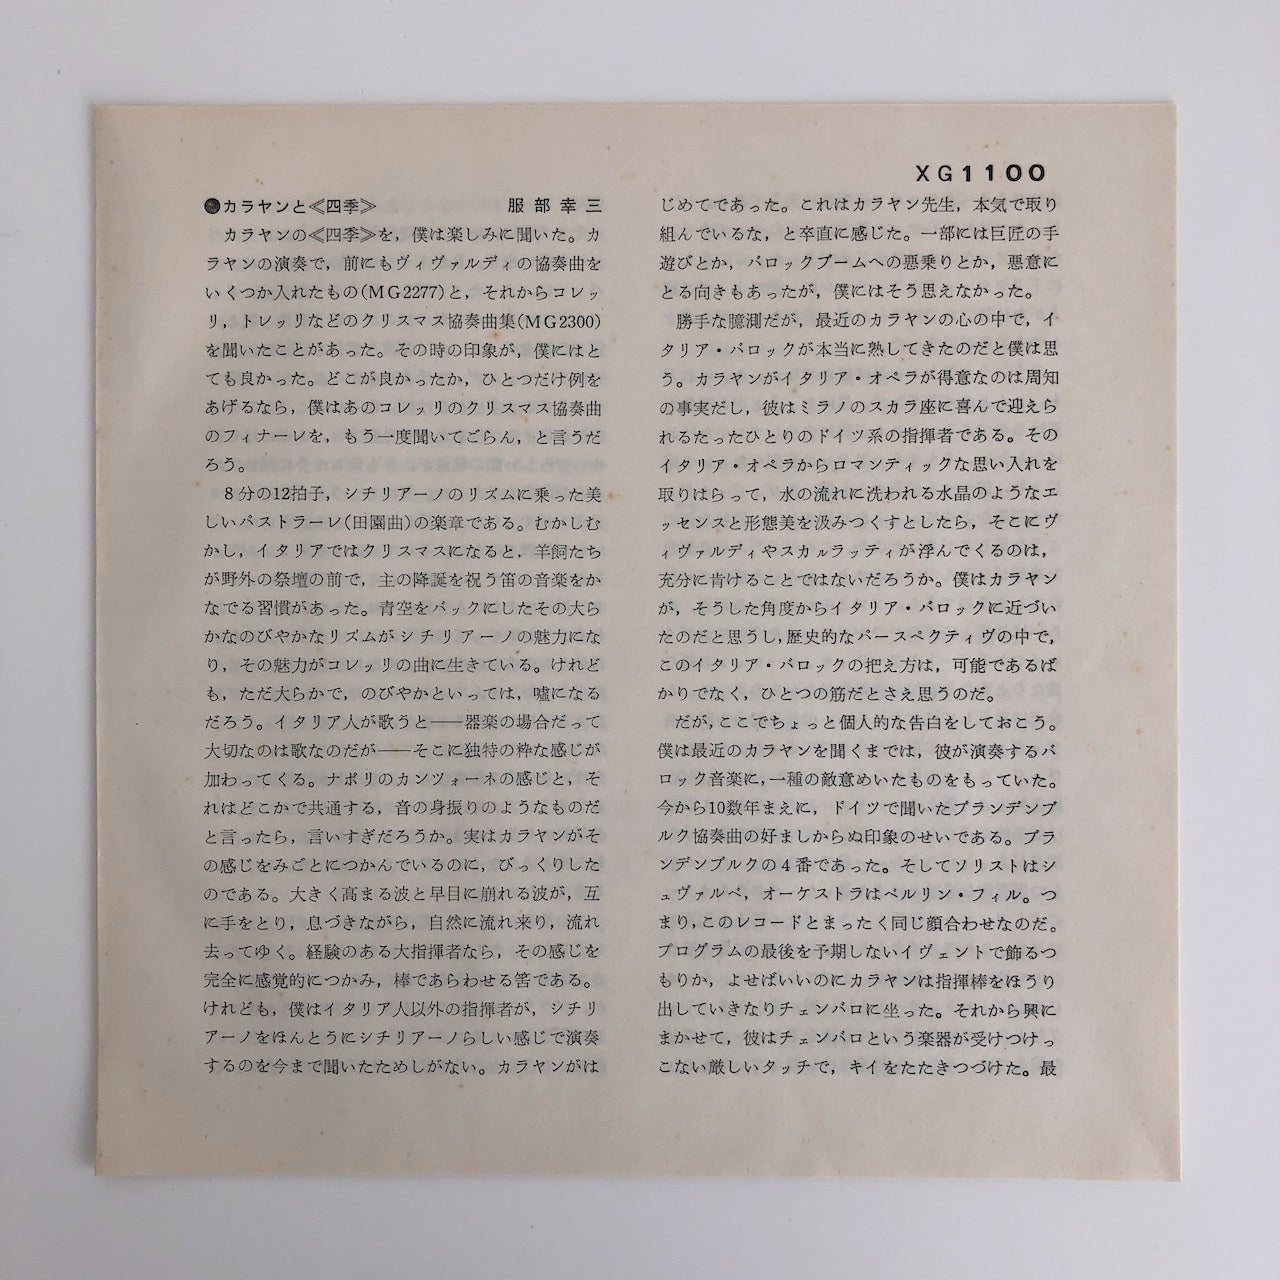 XG1100
●カラヤンと≪四季≫ 服部幸三
カラヤンの≪四季≫を，僕は楽しみに聞いた。カ
ラヤンの演奏で，前にもヴィヴァルディの協奏曲を
いくつか入れたもの(MG2277)と，それからコレッ
リ，トレッリなどのクリスマス協奏曲集(MG2300)
を聞いたことがあった。その時の印象が，僕にはと
ても良かった。どこが良かったか，ひとつだけ例を
あげるなら，僕はあのコレッリのクリスマス協奏曲
のフィナーレを，もう一度聞いてごらん，と言うだ
ろう。
8分の12拍子，シチリアーノのリズムに乗った美
しいパストラーレ(田園曲)の楽章である。むかしむ
かし，イタリアではクリスマスになると，羊飼たち
が野外の祭壇の前で，主の降誕を祝う笛の音楽をか
なでる習慣があった。青空をバックにしたその大ら
かなのびやかなリズムがシチリアーノの魅力にな
り，その魅力がコレッリの曲に生きている。けれど
も，ただ大らかで，のびやかといっては，嘘になる
だろう。イタリア人が歌うと――器楽の場合だって
大切なのは歌なのだが――そこに独特の粋な感じが
加わってくる。ナポリのカンツォーネの感じと，そ
れはどこかで共通する，音の身振りのようなものだ
と言ったら，言いすぎだろうか。実はカラヤンがそ
の感じをみごとにつかんでいるのに，びっくりした
のである。大きく高まる波と早目に崩れる波が，互
に手をとり，息づきながら，自然に流れ来り，流れ
去ってゆく。経験のある大指揮者なら，その感じを
完全に感覚的につかみ，棒であらわせる筈である。
けれども，僕はイタリア人以外の指揮者が，シチリ
アーノをほんとうにシチリアーノらしい感じで演奏
するのを今まで聞いたためしがない。カラヤンがは
じめてであった。これはカラヤン先生，本気で取り
組んでいるな，と卒直に感じた。一部には巨匠の手
遊びとか，バロックブームへの悪乗りとか，悪意に
とる向きもあったが，僕にはそう思えなかった。
勝手な臆測だが，最近のカラヤンの心の中で，イ
タリア・バロックが本当に熟してきたのだと僕は思
う。カラヤンがイタリア・オペラが得意なのは周知
の事実だし，彼はミラノのスカラ座に喜んで迎えら
れるたったひとりのドイツ系の指揮者である。その
イタリア・オペラからロマンティックな思い入れを
取りはらって，水の流れに洗われる水晶のようなエ
ッセンスと形態美を汲みつくすとしたら，そこにヴ
ィヴァルディやスカルラッティが浮んでくるのは，
充分に肯けることではないだろうか。僕はカラヤン
が，そうした角度からイタリア・バロックに近づい
たのだと思うし，歴史的なパースペクティヴの中で，
このイタリア・バロックの把え方は，可能であるば
かりでなく，ひとつの筋だとさえ思うのだ。
だが，ここでちょっと個人的な告白をしておこう。
僕は最近のカラヤンを聞くまでは，彼が演奏するバ
ロック音楽に，一種の敵意めいたものをもっていた。
今から10数年まえに，ドイツで聞いたブランデンブ
ルク協奏曲の好ましからぬ印象のせいである。ブラ
ンデンブルクの4番であった。そしてソリストはシ
ュヴァルベ，オーケストラはベルリン・フィル。つ
まり，このレコードとまったく同じ顔合わせなのだ。
プログラムの最後を予期しないイヴェントで飾るつ
もりか，よせばいいのにカラヤンは指揮棒をほうり
出していきなりチェンバロに坐った。それから興に
まかせて，彼はチェンバロという楽器が受けつけっ
こない厳しいタッチで，キイをたたきつづけた。最